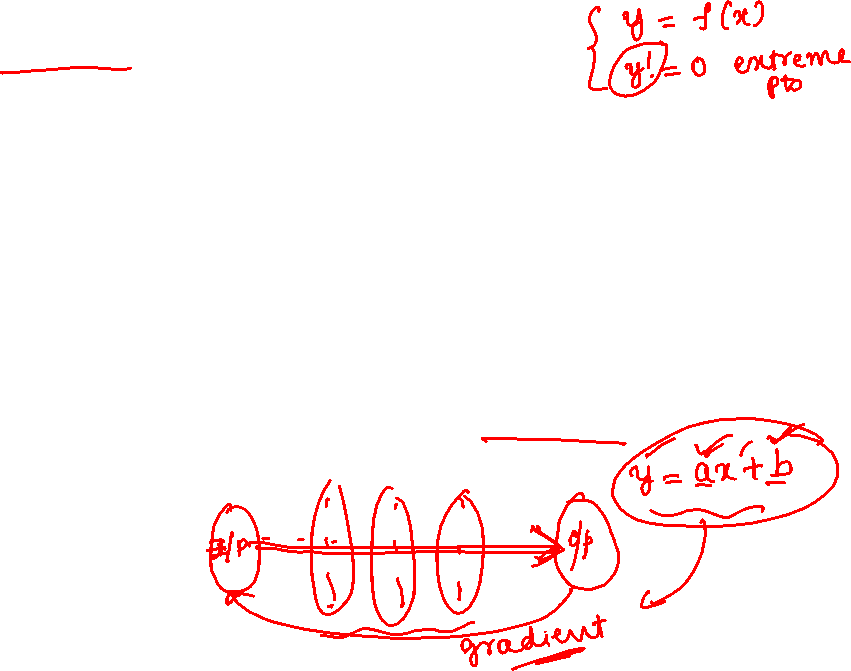 y = f(x)
y' = 0 extreme
pts
y = ax + b
I/p
o/p
gradient